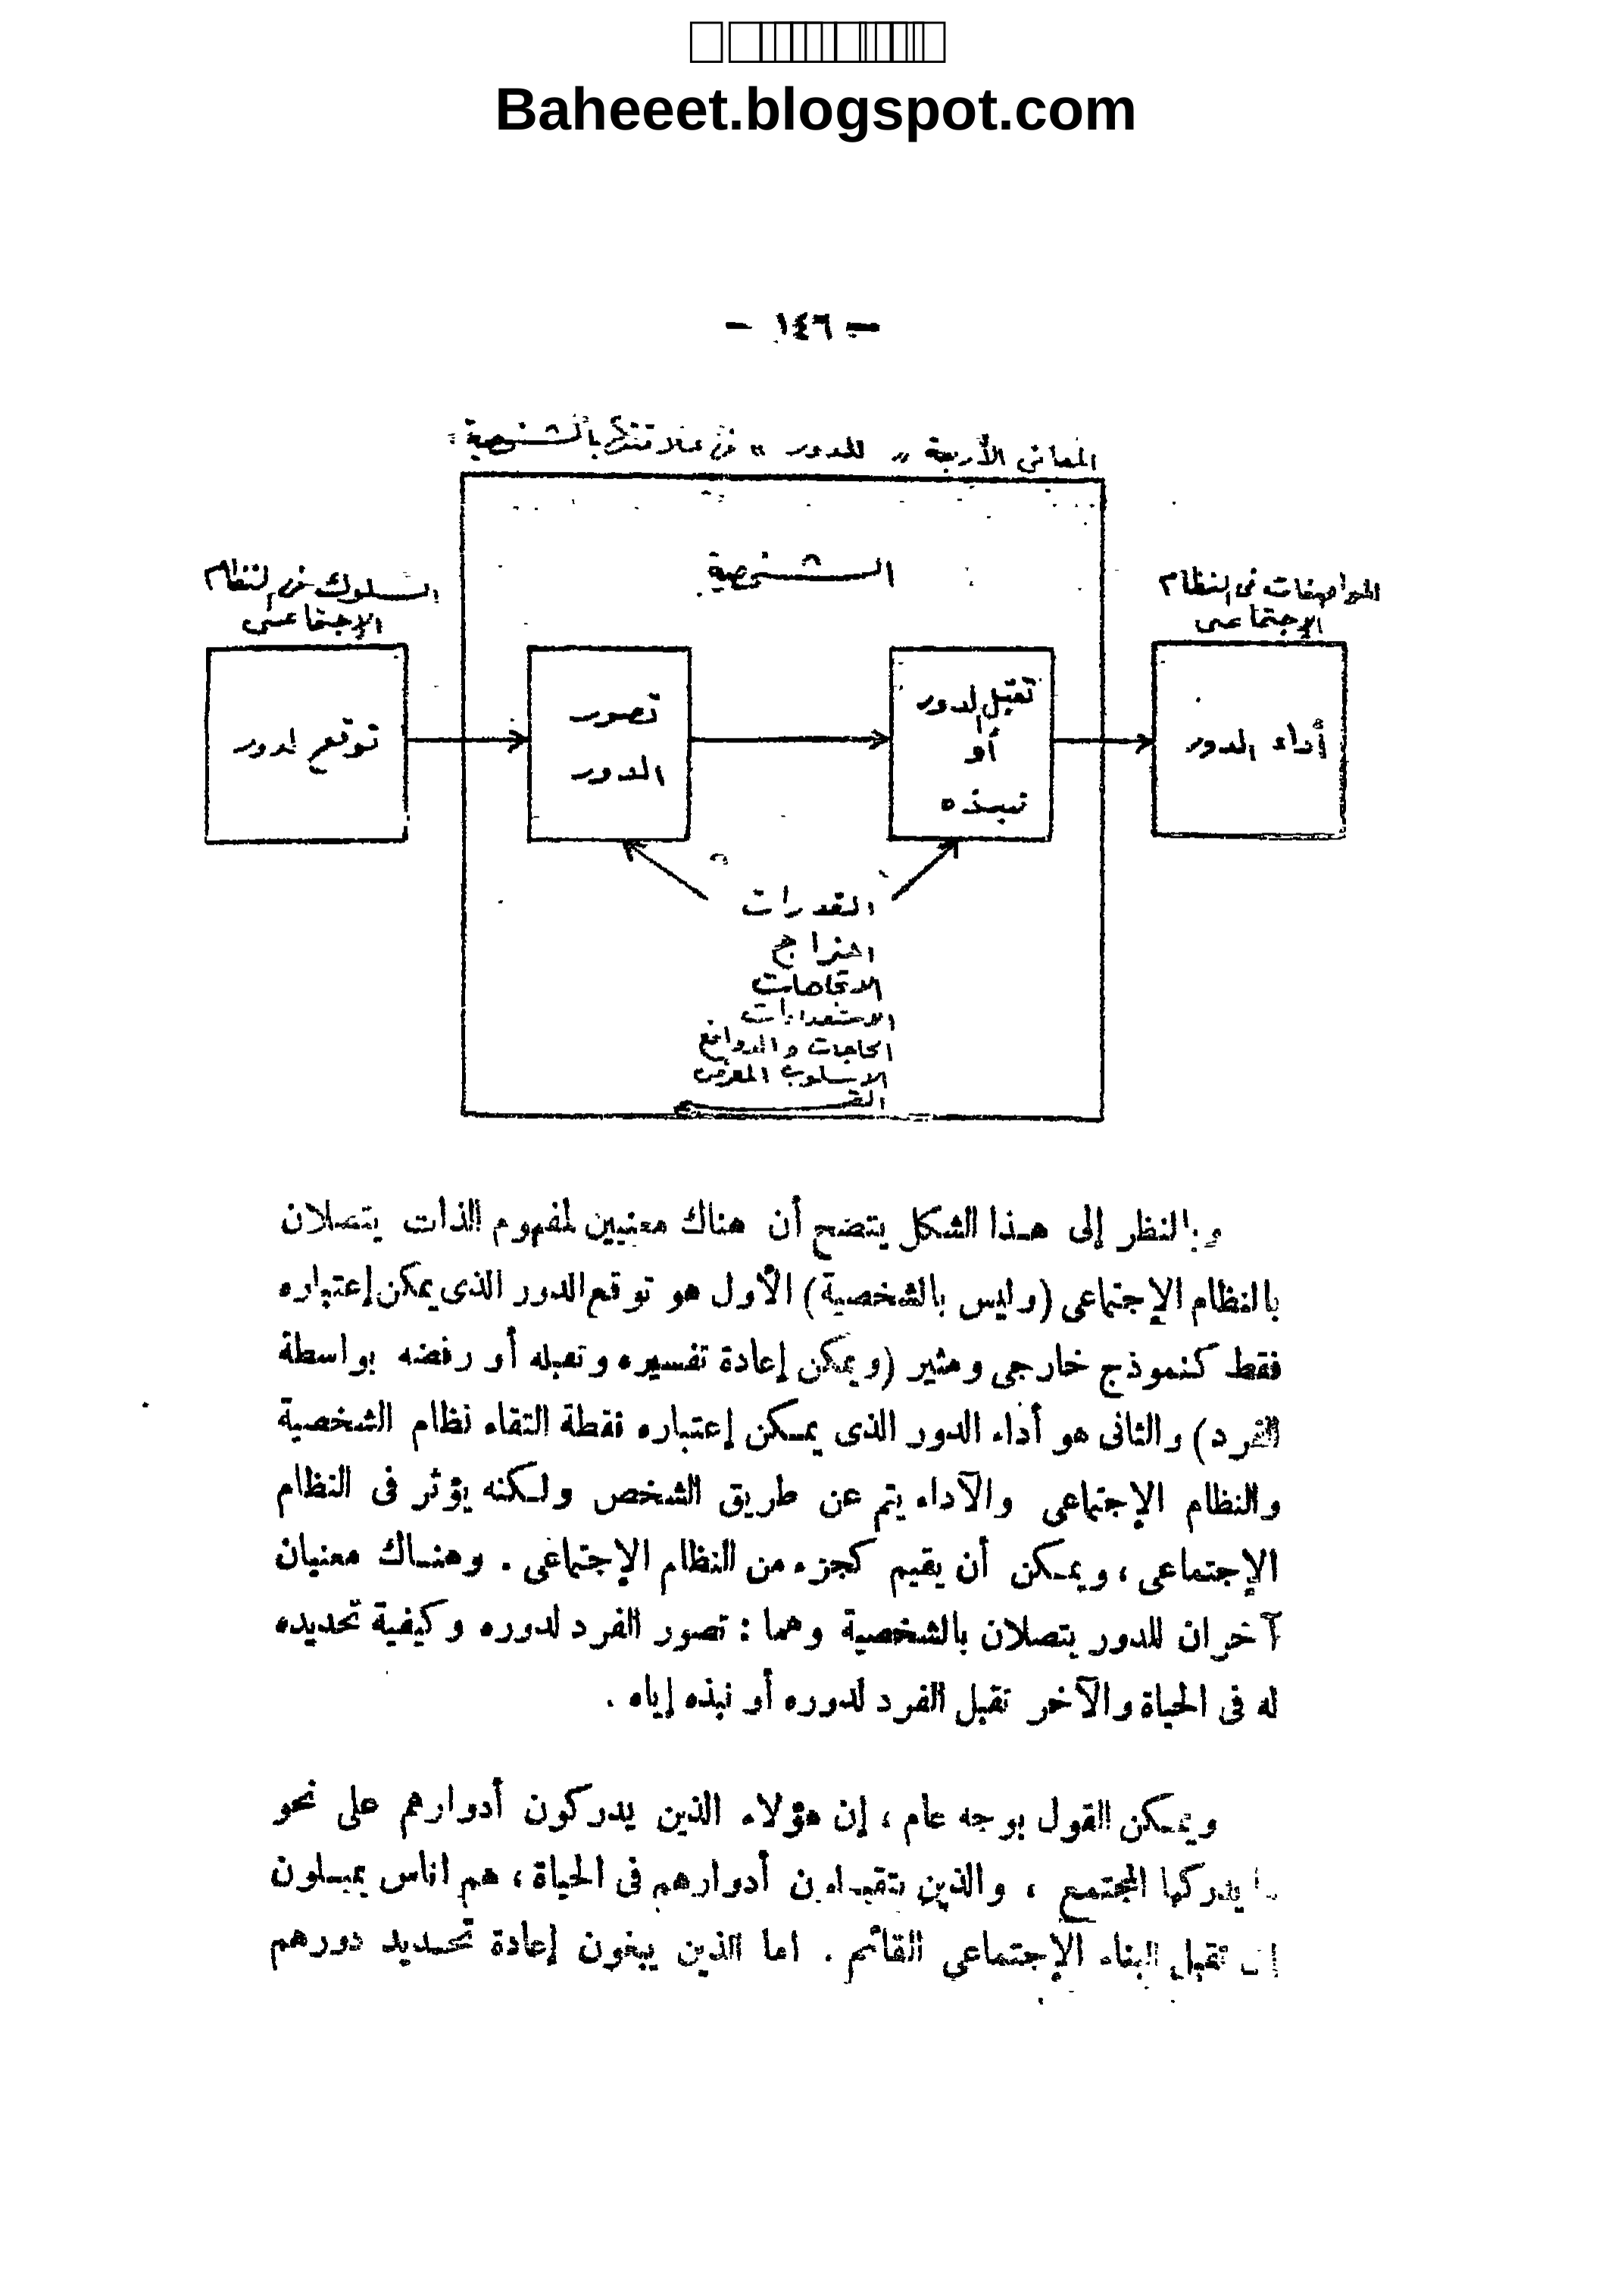 Baheeet.blogspot.com
— ١٤٦ —
المعانى الأربعة « للدور » فى علاقتها بالشخصية :
الشخصية
المواصفات فى النظام
الإجتماعى
السلوك فى النظام
الإجتماعى
أداء الدور
تقبل الدور
أو
نبذه
تصور
الدور
توقع الدور
القدرات
المزاج
الاتجاهات
الاستعدادات
الحاجات والدوافع
الاسلوب المعرفى
القيم
وبالنظر إلى هـذا الشكل يتضح أن هناك معنيين لمفهوم الذات يتصلان
بالنظام الإجتماعى (وليس بالشخصية) الأول هو توقع الدور الذى يمكن إعتباره
فقط كنموذج خارجى ومثير (ويمكن إعادة تفسيره وتقبله أو رفضه بواسطة
الفرد) والثانى هو أداء الدور الذى يمـكن إعتباره نقطة التقاء نظام الشخصية
والنظام الإجتماعى والآداء يتم عن طريق الشخص ولـكنه يؤثر فى النظام
الإجتماعى ، ويمـكن أن يقيم كجزء من النظام الإجتماعى . وهنـاك معنيان
آخران للدور يتصلان بالشخصية وهما : تصور الفرد لدوره وكيفية تحديده
له فى الحياة والآخر تقبل الفرد لدوره أو نبذه إياه .
ويمـكن القول بوجه عام ، إن هؤلاء الذين يدركون أدوارهم على نحو
ما يدركها المجتمع ، والذين يتقبـلون أدوارهم فى الحياة ، هم اناس يميـلون
إلى تقبل البناء الإجتماعى القائم . اما الذين يبغون إعادة تحـديد دورهم